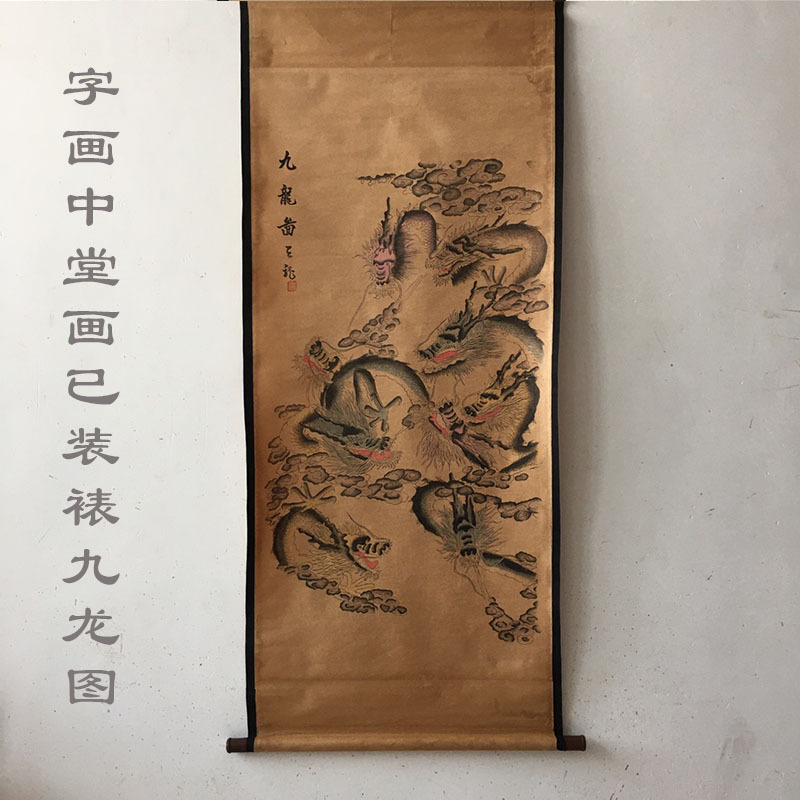 字画中堂画已装裱九龙图
九龍啚